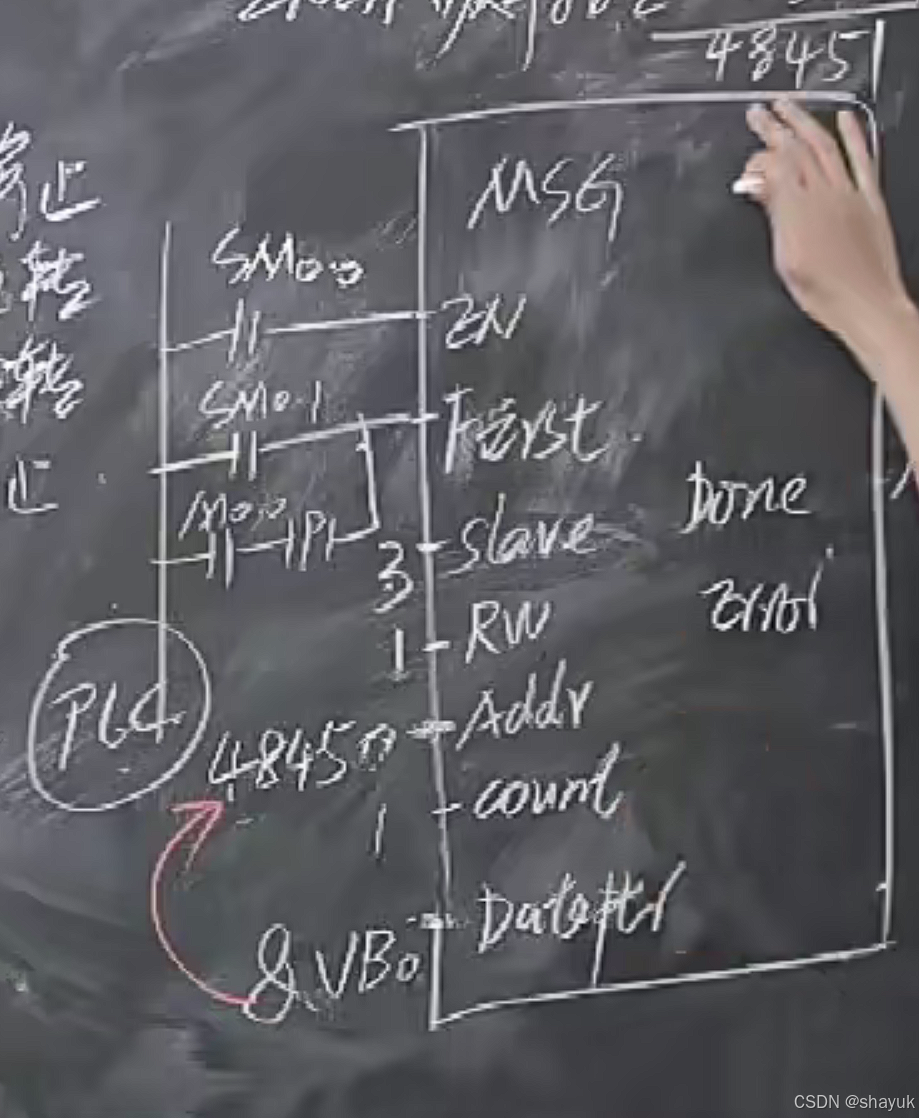 4845
MSG
SM0.0
EN
SM0.1
First
M0.0
P
3
Slave
Done
Error
1
RW
PLC
48450
Addr
1
count
&VB0
Dataptr
正
转
转
止
CSDN @shayuk